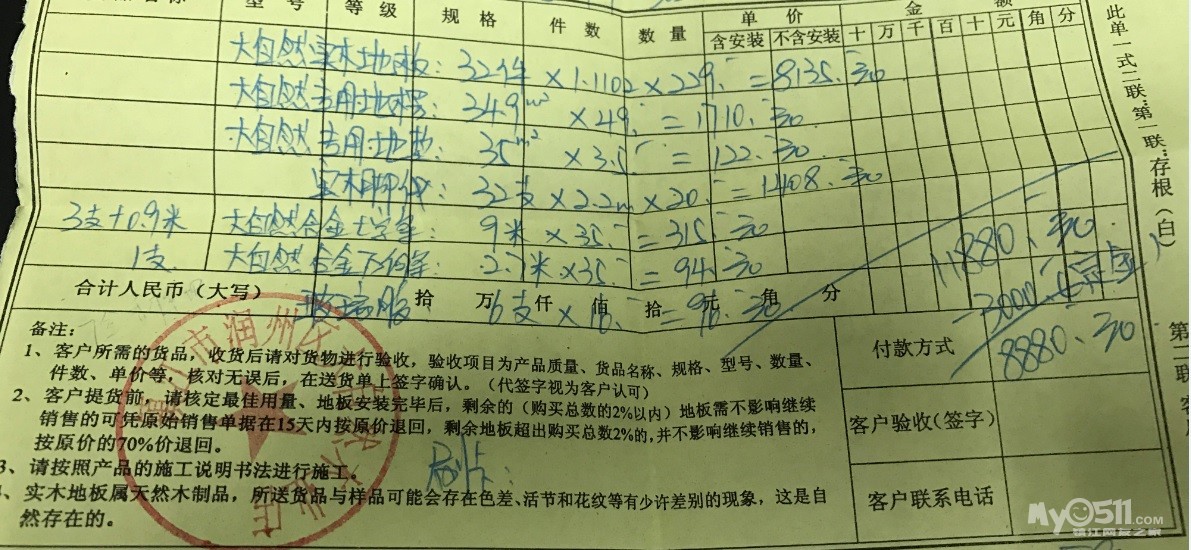 型号 等级 规格 件数 数量 单价 金额
含安装 不含安装 十万千百十元角分
大自然实木地板：32件×1.1102×229.=8135.元
大自然专用地楞：34.9m²×49.=1710.元
大自然专用地垫：35m²×3.5=122.元
实木脚线：32支×2.2m×20.=1408.元
3支+0.9米 大自然合金 9米×35.=315.元
1支 大自然合金 2.7米×35=94.元
11880.元
合计人民币（大写） 拾 万 仟 佰 拾 元 角 分
6支×16.=96.元
-3000.
8880.元
备注：
1、客户所需的货品，收货后请对货物进行验收，验收项目为产品质量、货品名称、规格、型号、数量、
件数、单价等，核对无误后，在送货单上签字确认。（代签字视为客户认可）
2、客户提货前，请核定最佳用量、地板安装完毕后，剩余的（购买总数的2%以内）地板需不影响继续
销售的可凭原始销售单据在15天内按原价退回，剩余地板超出购买总数2%的，并不影响继续销售的，
按原价的70%价退回。
3、请按照产品的施工说明书法进行施工。
、实木地板属天然木制品，所送货品与样品可能会存在色差、活节和花纹等有少许差别的现象，这是自
然存在的。
付款方式
客户验收（签字）
客户联系电话
此单一式二联：第一联：存根（白）
第二联
市润州区
My0511.com
镇江网友之家